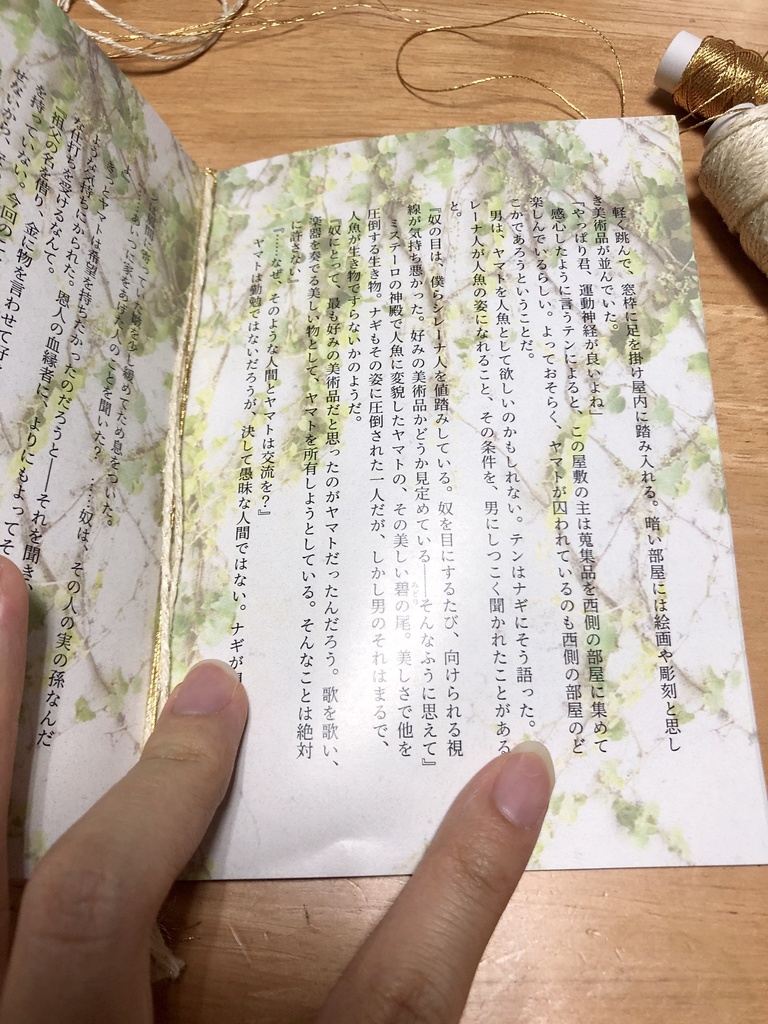 軽く跳んで、窓枠に足を掛け屋内に踏み入れる。暗い部屋には絵画や彫刻と思し
き美術品が並んでいた。
「やっぱり君、運動神経が良いよね」
感心したように言うテンによると、この屋敷の主は蒐集品を西側の部屋に集めて
楽しんでいるらしい。よっておそらく、ヤマトが囚われているのも西側の部屋のど
こかであろうということだ。
男は、ヤマトを人魚として欲しいのかもしれない。テンはナギにそう語った。
レーナ人が人魚の姿になれること、その条件を、男にしつこく聞かれたことがある
と。
『奴の目は、僕らシレーナ人を値踏みしている。奴を目にするたび、向けられる視
線が気持ち悪かった。好みの美術品かどうか見定めている――そんなふうに思えて』
ミステーロの神殿で人魚に変貌したヤマトの、その美しい碧の尾。美しさで他を
みどり
圧倒する生き物。ナギもその姿に圧倒された一人だが、しかし男のそれはまるで、
人魚が生き物ですらないかのようだ。
『奴にとって、最も好みの美術品だと思ったのがヤマトだったんだろう。歌を歌い、
楽器を奏でる美しい物として、ヤマトを所有しようとしている。そんなことは絶対
に許さない』
『……なぜ、そのような人間とヤマトは交流を？』
ヤマトは勤勉ではないだろうが、決して愚昧な人間ではない。ナギが
めてため息をついた。
あいつに家をあげた人のことを聞いた？　……奴は、その人の実の孫なんだ
よ』
きっとヤマトは希望を持ちたかったのだろうと――それを聞き、
ような気持ちにかられた。恩人の血縁者に、よりにもよってそ
な仕打ちを受けるなんて。
『祖父の名を借り、金に物を言わせて好
を持っていない。今回のこ
せないから、